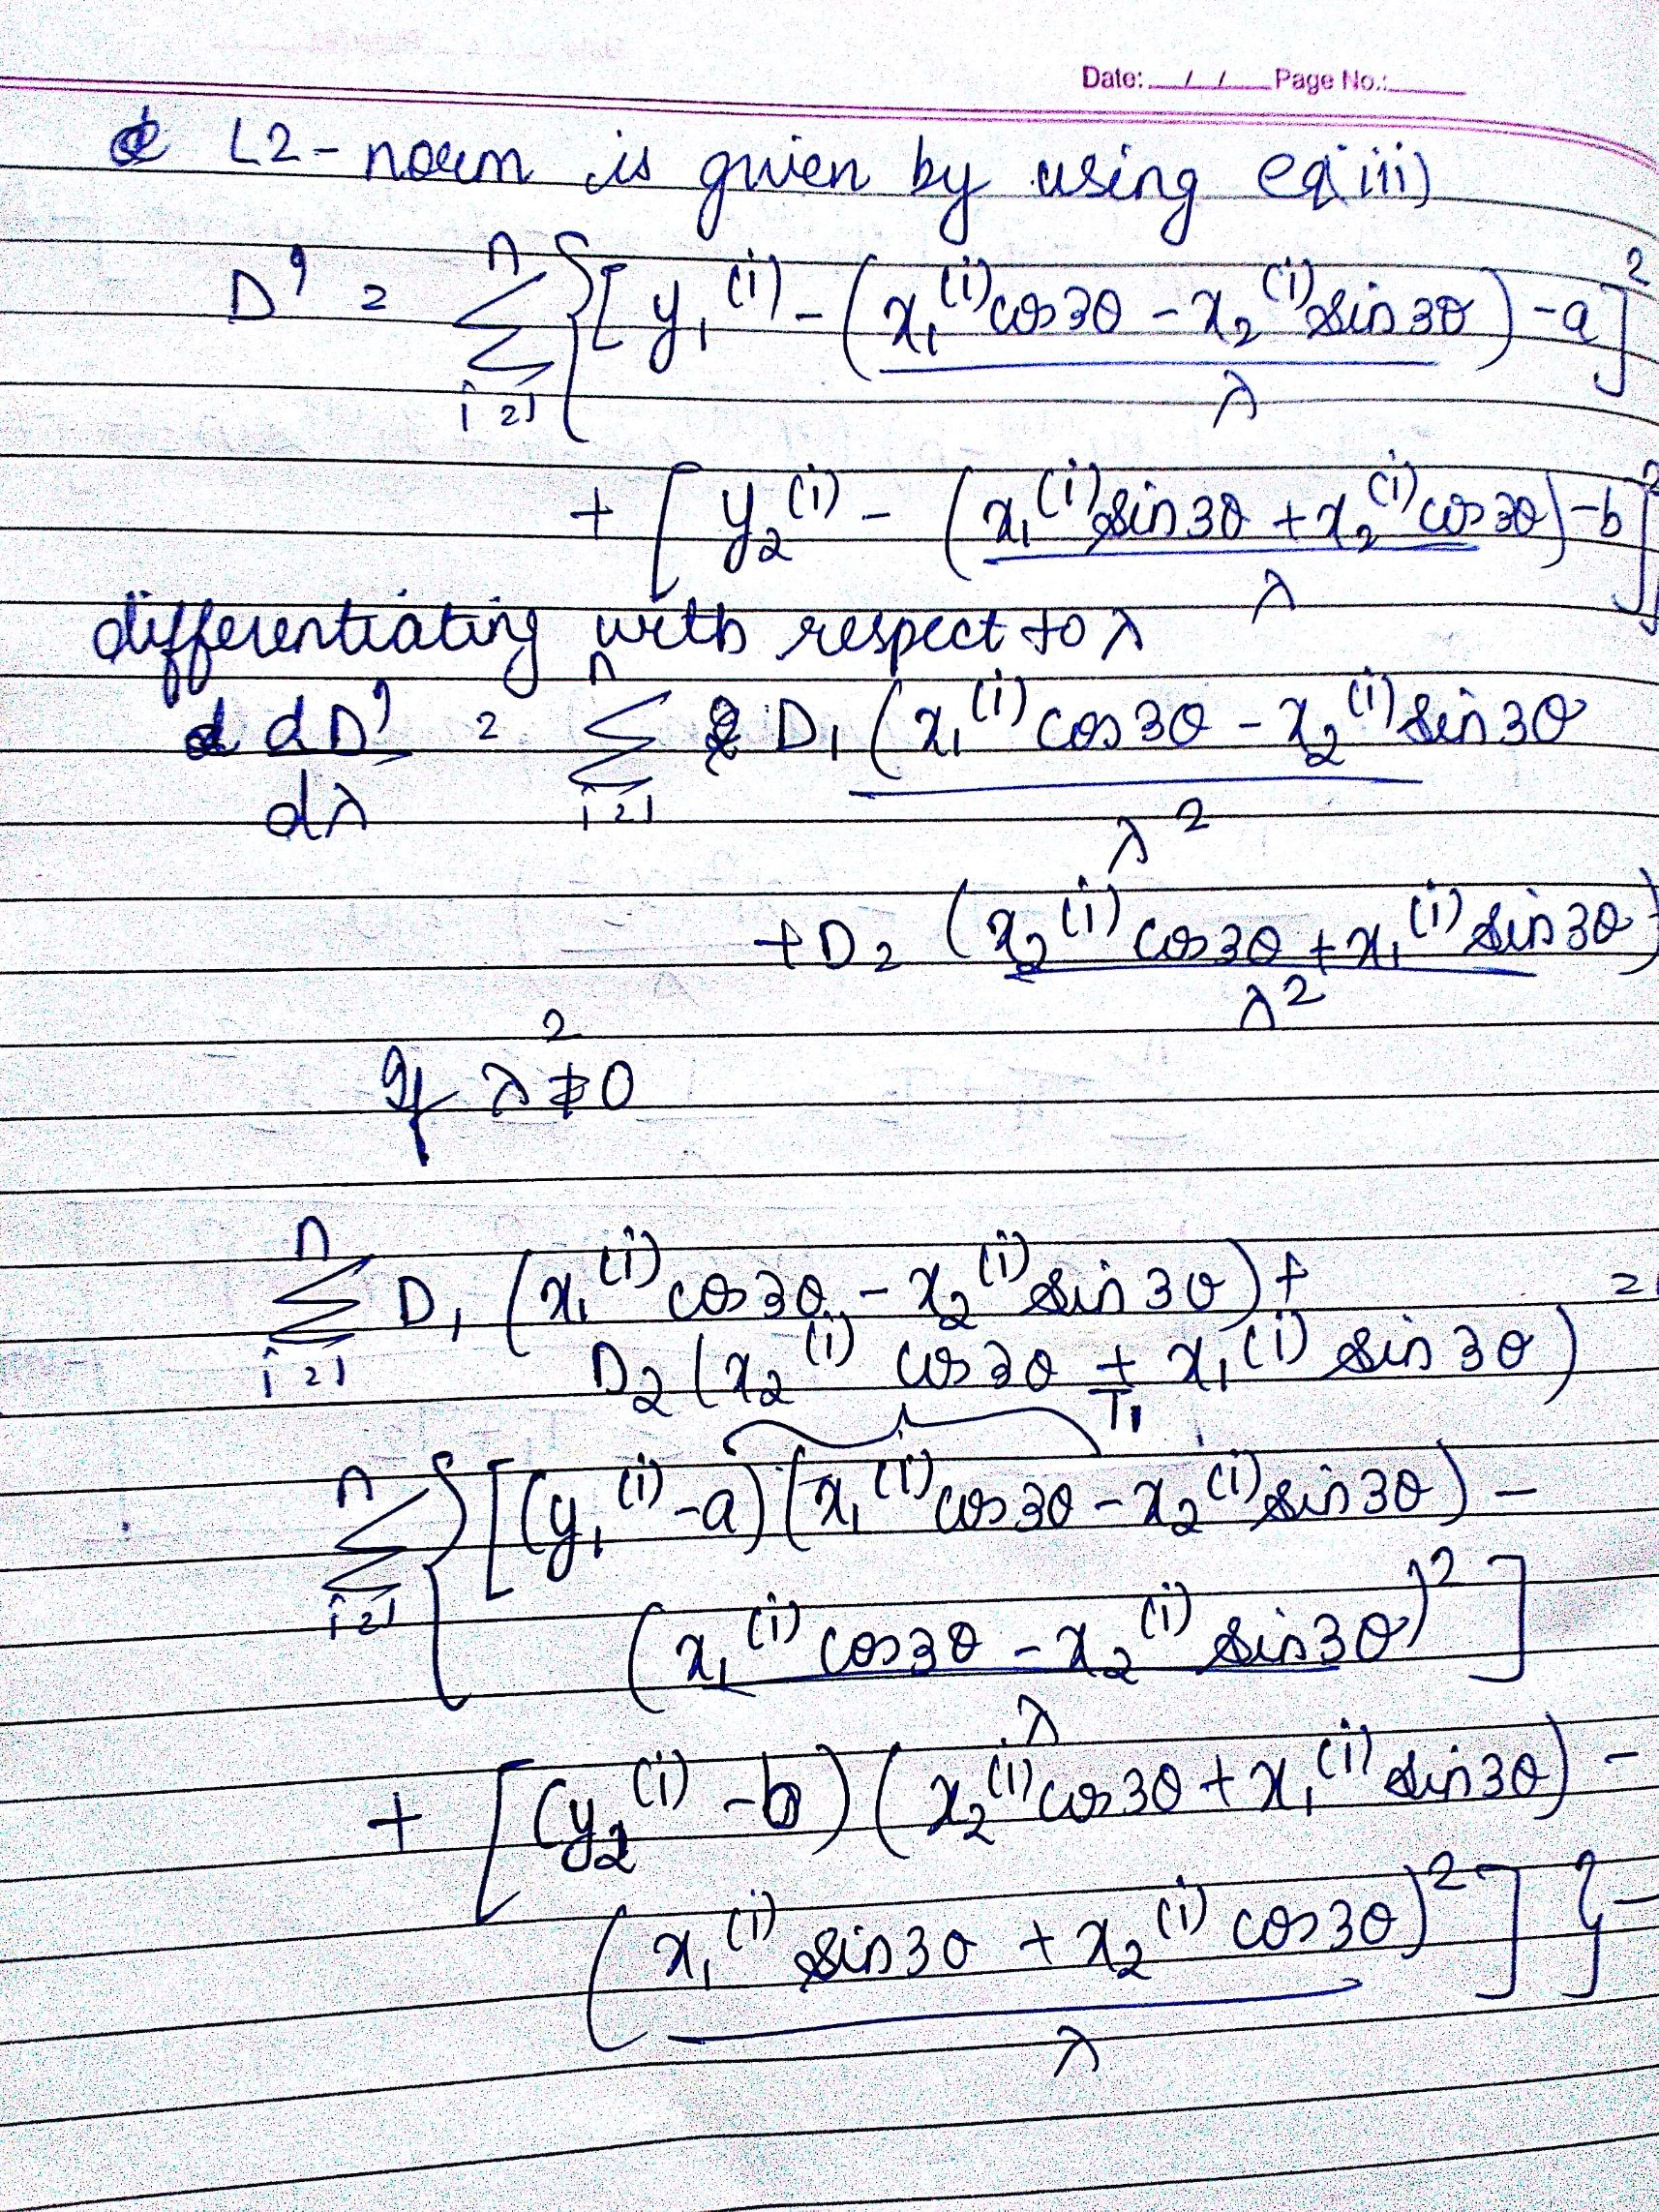 Date: __/__/__ Page No.:
L2-norm is given by using eq(iii)
D' = Σ_{i=1}^{n} { [ y₁⁽ⁱ⁾ - (x₁⁽ⁱ⁾cos3θ - x₂⁽ⁱ⁾sin3θ)/λ - a ]²
+ [ y₂⁽ⁱ⁾ - (x₁⁽ⁱ⁾sin3θ + x₂⁽ⁱ⁾cos3θ)/λ - b ]² }
differentiating with respect to λ
dD'/dλ = Σ_{i=1}^{n} D₁ (x₁⁽ⁱ⁾cos3θ - x₂⁽ⁱ⁾sin3θ / λ²
+ D₂ (x₂⁽ⁱ⁾cos3θ + x₁⁽ⁱ⁾sin3θ) / λ²
If λ² ≠ 0
Σ_{i=1}^{n} D₁ (x₁⁽ⁱ⁾cos3θ - x₂⁽ⁱ⁾sin3θ) + =
D₂ (x₂⁽ⁱ⁾cos3θ + x₁⁽ⁱ⁾sin3θ)
T₁
Σ_{i=1}^{n} { [ (y₁⁽ⁱ⁾ - a)(x₁⁽ⁱ⁾cos3θ - x₂⁽ⁱ⁾sin3θ) -
(x₁⁽ⁱ⁾cos3θ - x₂⁽ⁱ⁾sin3θ)² / λ ]
+ [ (y₂⁽ⁱ⁾ - b)(x₂⁽ⁱ⁾cos3θ + x₁⁽ⁱ⁾sin3θ) -
(x₁⁽ⁱ⁾sin3θ + x₂⁽ⁱ⁾cos3θ)² / λ ] }